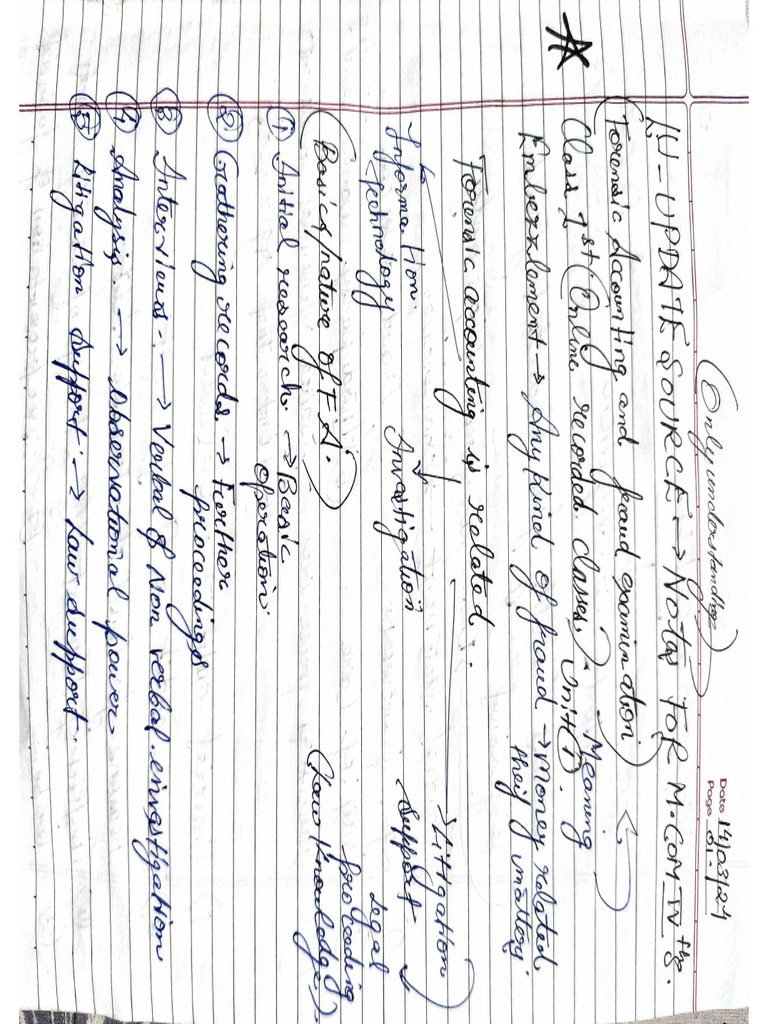 Only understanding
Date 14/03/24
Page 01
LU - UPDATE SOURCE → Notes FOR M.COM IVth S.
(Forensic Accounting and fraud examination)
Class 1st (Online recorded classes) Unit (I).
Meaning
Embezzlement → Any kind of fraud → Money related
theify mattery.
Forensic accounting is related.
Information technology
Investigation
Litigation support
Legal proceeding
(Law Knowledge).
(Basics/nature of F.A.)
① Initial research → Basic operation.
② Gathering records → Further proceedings
③ Interviews. → Verbal & Non verbal envestigation
④ Analysis. → Observational power
⑤ Litigation Support → Law support.